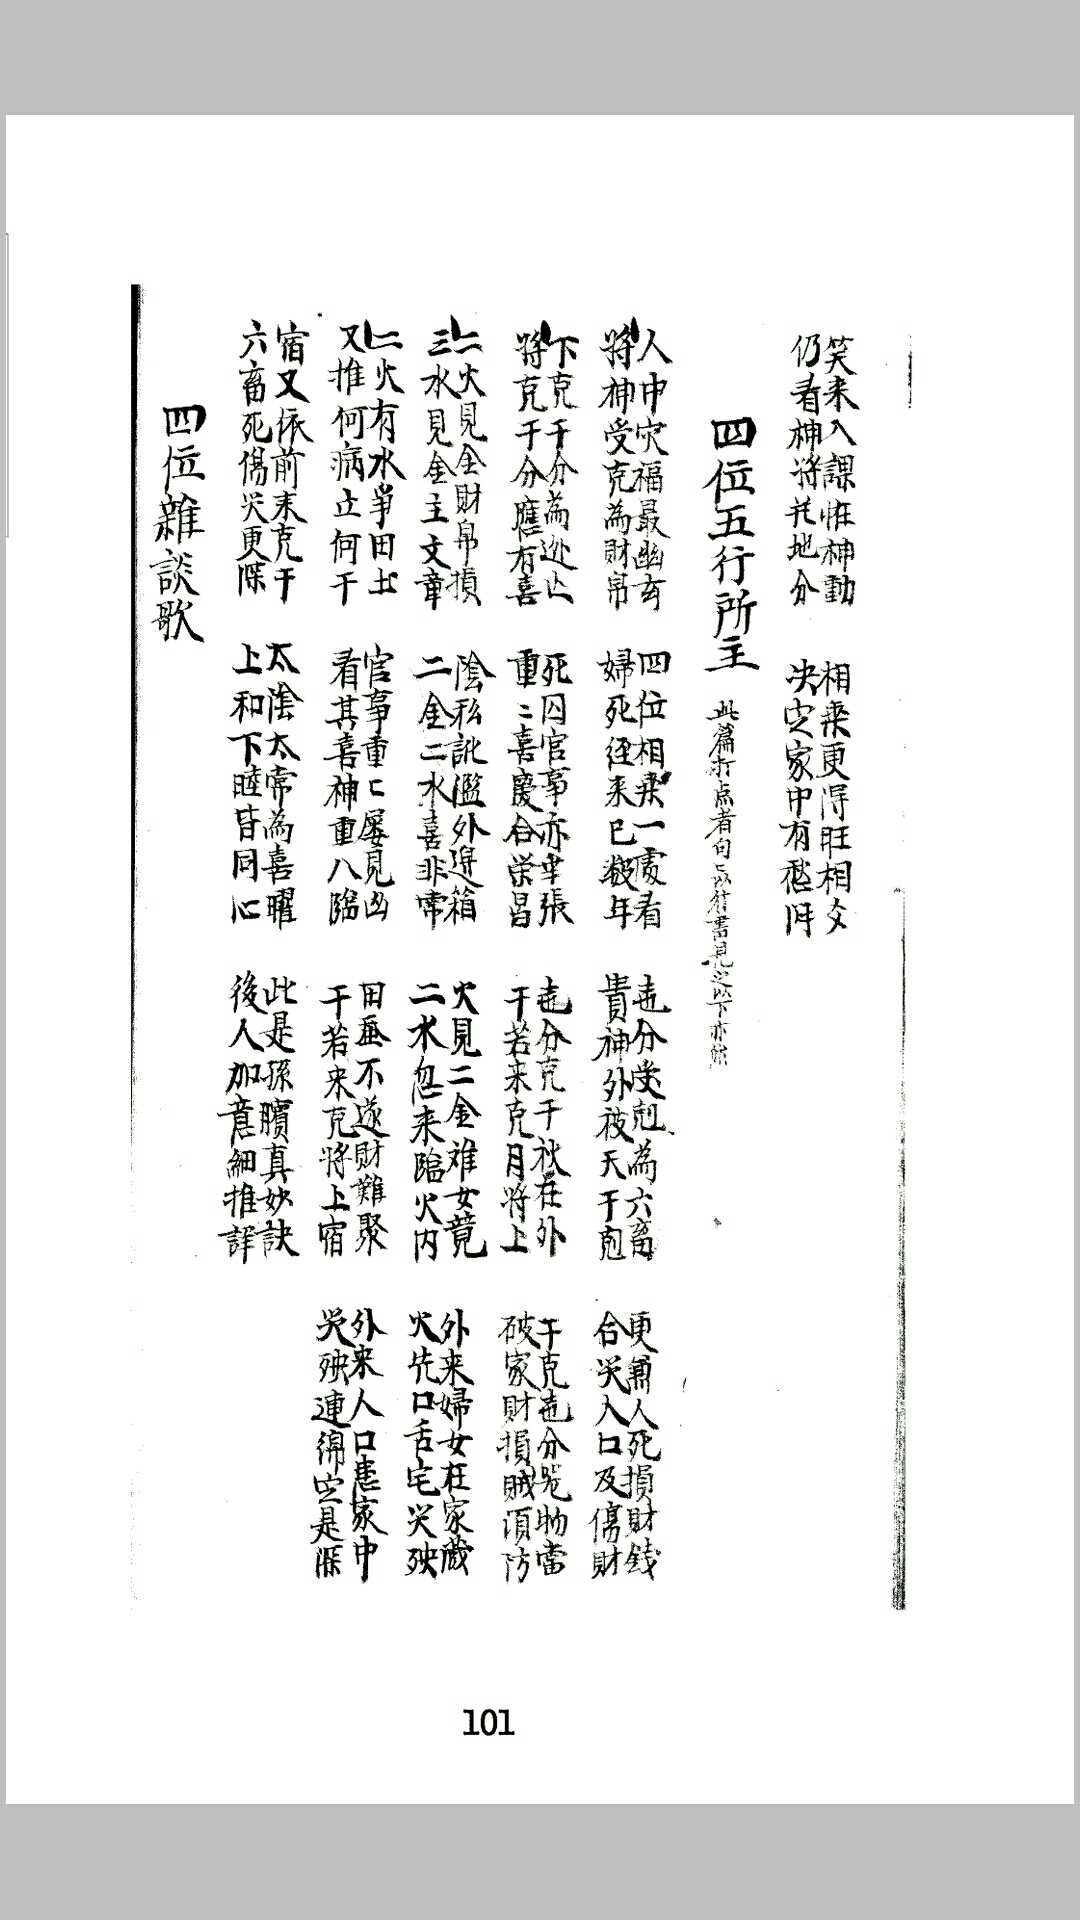 笑来入課性神動　相乗更得旺相交
仍看神将於地分　決定家中有愁
四位五行所主　此篇打点者句以符書見之以下亦然
人中灾福最幽玄　四位相乗一處看　地分受剋為六畜　更兼人死損財錢
将神受克為財帛　婦死经来已数年　貴神外被天干剋　合灾人口及傷財
下克干分為迯亡　死囚官事亦乖張　地分克干秋在外　干克地分光助當
将克干分應有喜　重〻喜慶合栄昌　干若来克月将上　破家財損賊須防
二火見金財帛損　陰私訛濫外迯箱　火見二金难女竟　外来婦女在家藏
三水見金主文章　二金二水喜非常　二水忽来臨火内　火光口舌宅灾殃
二火有水爭田土　官事重〻屡見凶　田蚕不遂財難聚　外来人口患家中
又推何病立何干　看其喜神重八臨　干若来克将上宿　灾殃連綿定是深
宿又依前来克干　太陰太常為喜曜　此是孫臏真妙訣
六畜死傷灾更深　上和下睦皆同心　後人加意細推詳
四位雜談歌
101